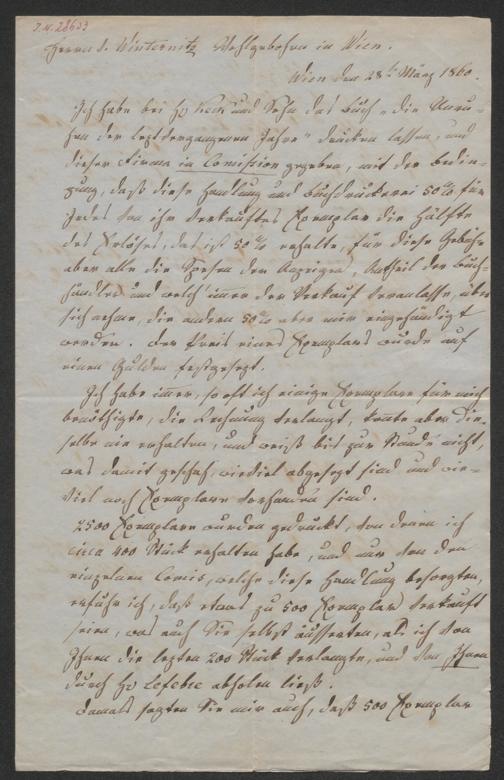 I.N. 28633
Herrn J. Winternitz Wohlgeboren in Wien.
Wien den 28t März 1860.
Ich habe bei H Keck und Sohn das Buch „die Unru-
hen der letztvergangenen Jahre" drucken lassen, und
dieser Firma in Comission gegeben, mit der Bedin-
gung, daß diese Handlung und Buchdruckerei 50 % für
jedes von ihr verkauftes Exemplar die Hälfte
des Erlöses, das ist 50 % erhalte, für diese Gebühr
aber alle die Spesen der Anzeigen, Antheil der Buch-
händler und welch' immer der Verkauf veranlasse, über
sich nehme, die andern 50 % aber mir eingehändigt
werden. Der Preis eines Exemplars wurde auf
einen Gulden festgesetzt.
Ich habe immer, so oft ich einige Exemplare für mich
benöthigte, die Rechnung verlangt, konnte aber die-
selbe nie erhalten, und weiß bis zur Stunde nicht,
was damit geschah, wieviel abgesetzt sind und wie-
viel noch Exemplare vorhanden sind.
2500 Exemplare wurden gedruckt, von denen ich
circa 400 Stück erhalten habe, und nur von den
einzelnen Comis, welche diese Handlung besorgten,
erfuhr ich, daß etwas zu 500 Exemplar verkauft
seien, was auch Sie selbst äusserten, als ich von
Ihnen die letzten 200 Stück verlangte, und von Ihnen
durch H Lefebre abholen ließ.
Damals sagten Sie mir auch, daß 500 Exemplar